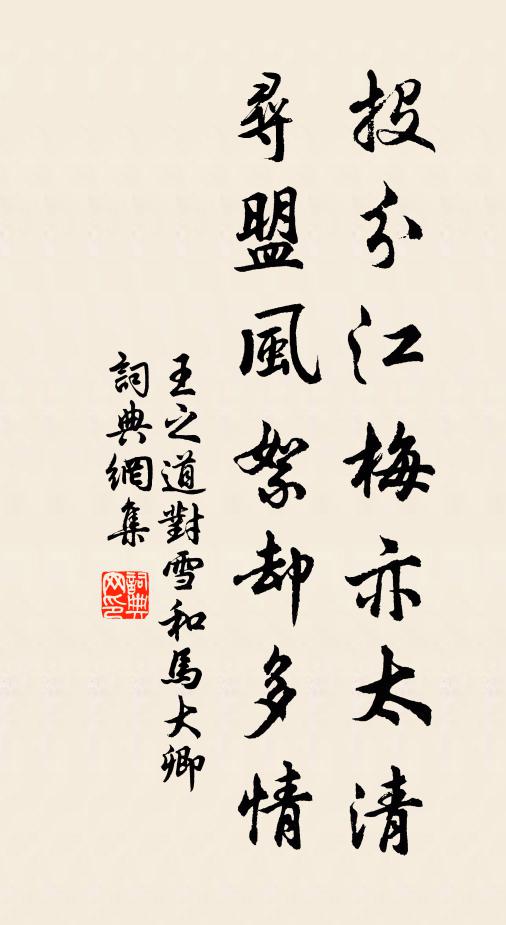 投分江梅亦太清
尋盟風絮却多情
王之道對雪和馬大卿
詞典網集
詞典网印